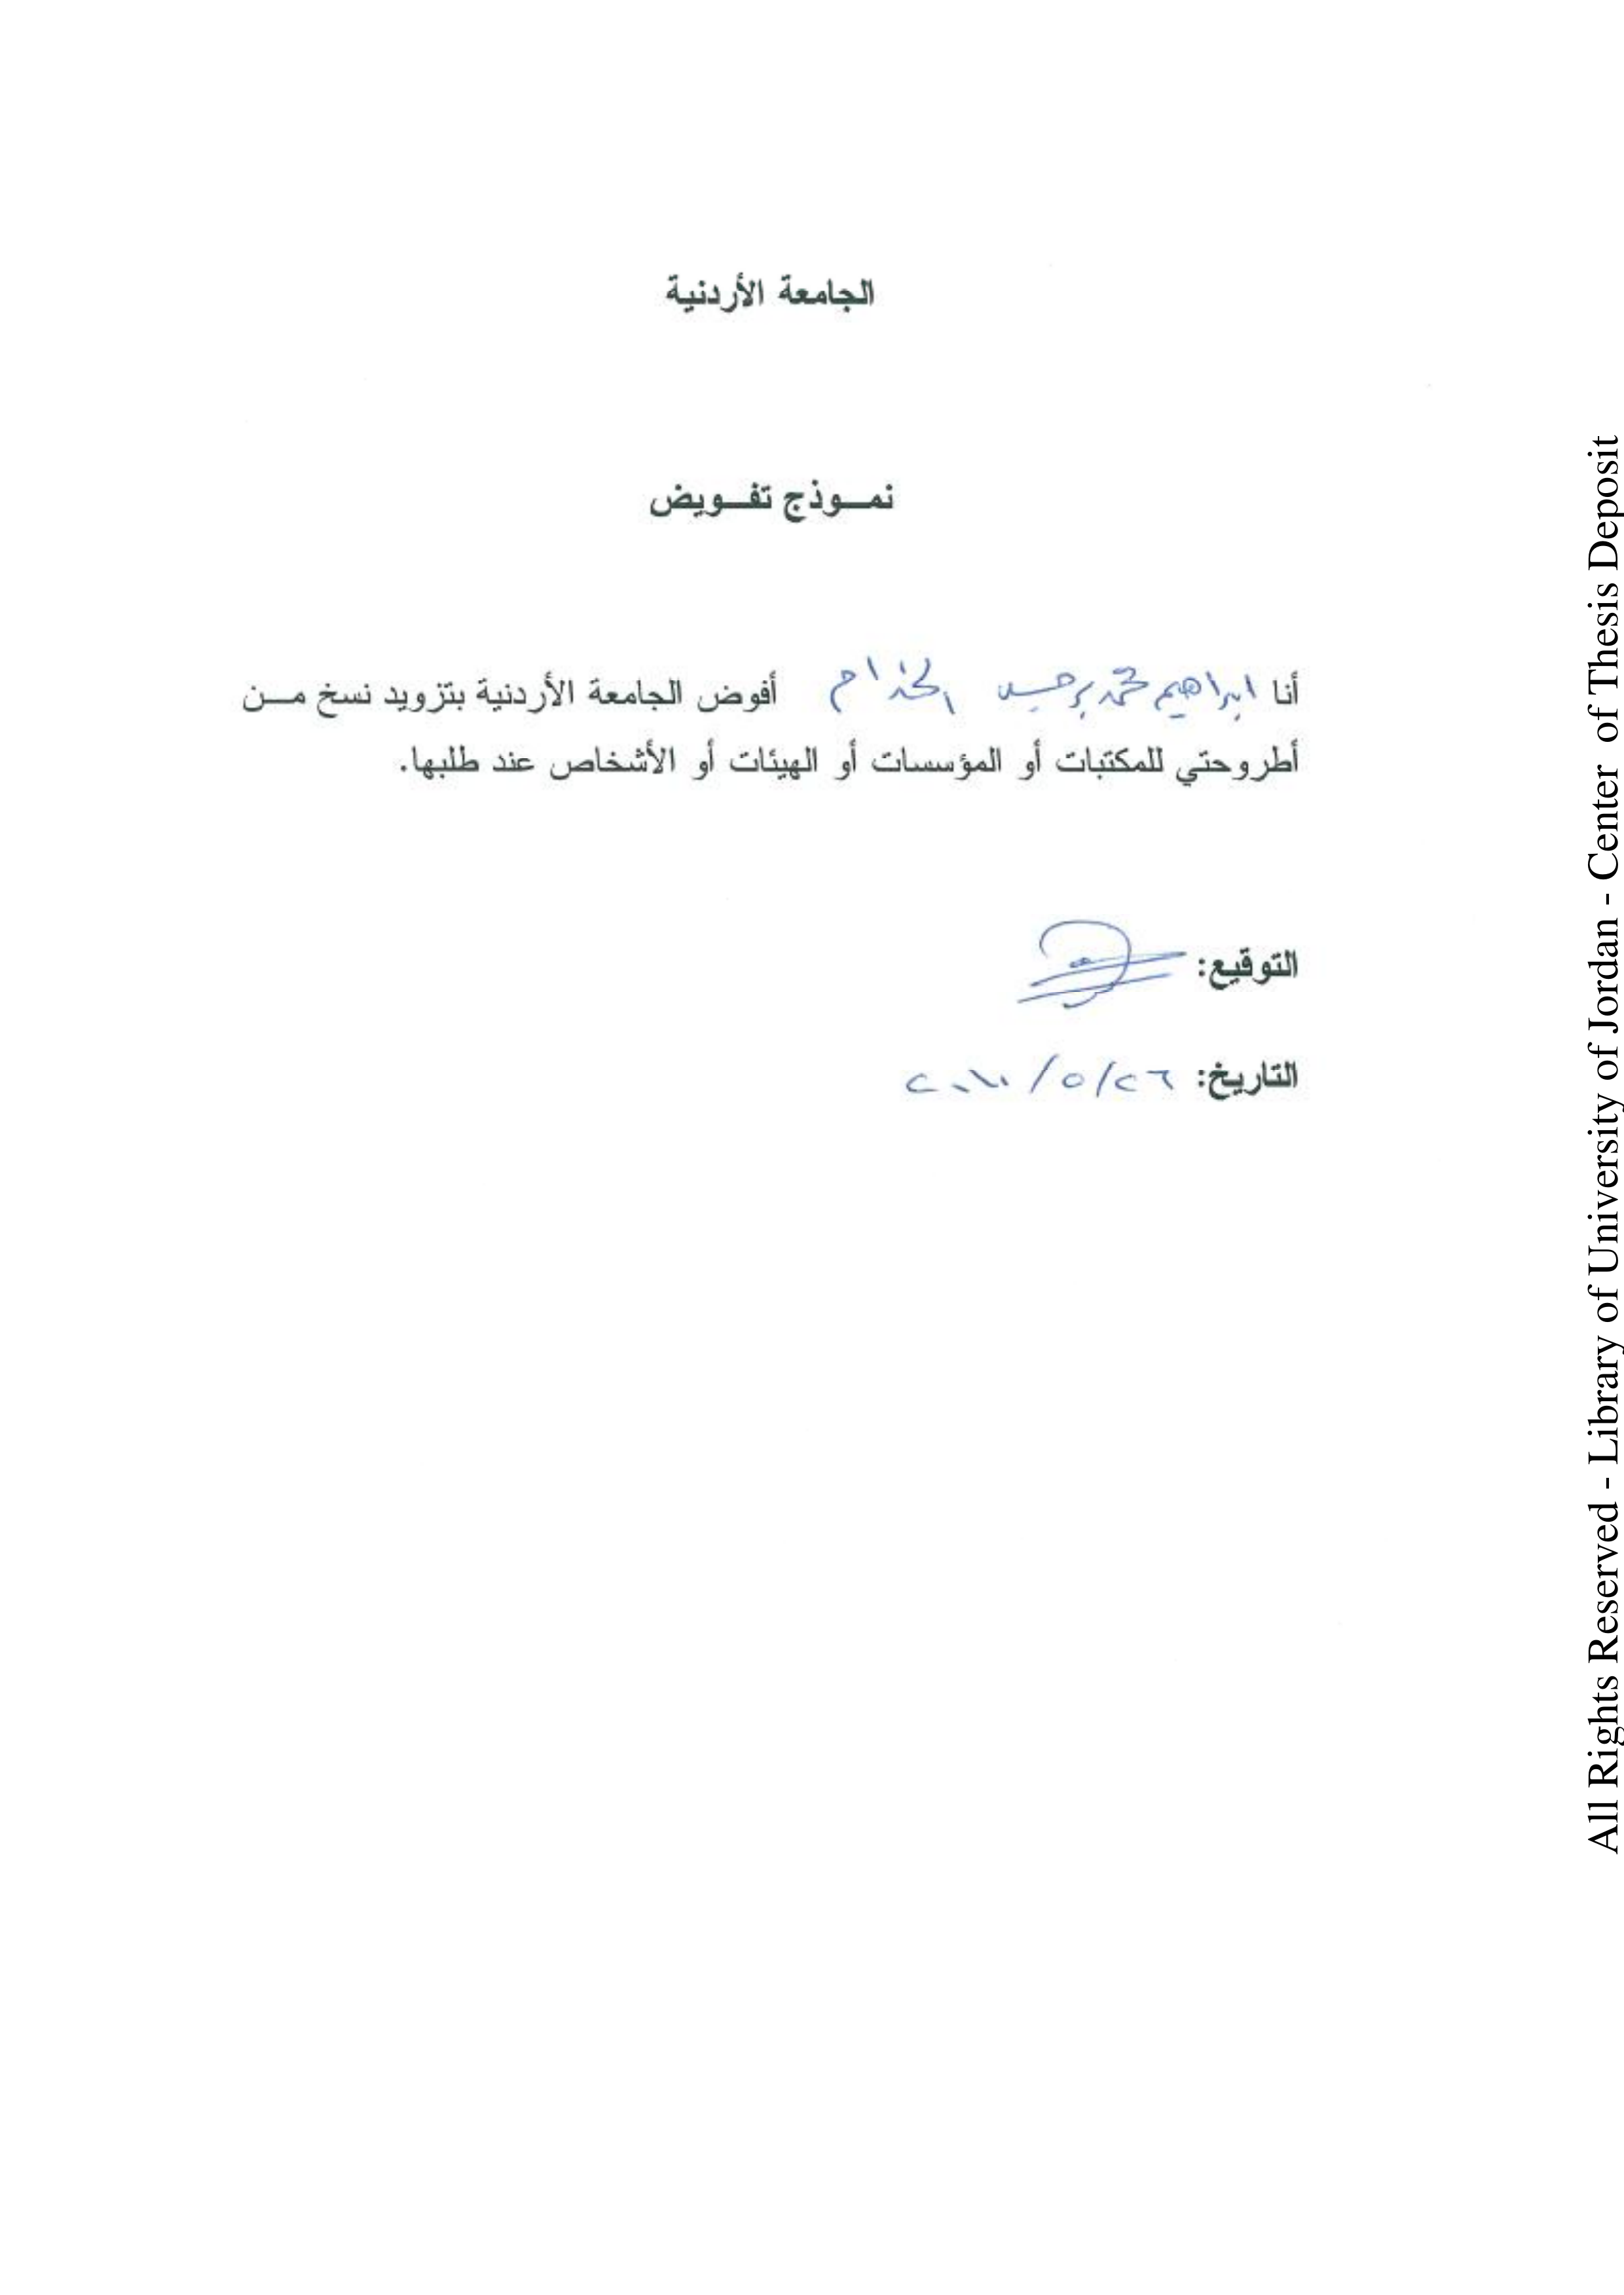 الجامعة الأردنية
نمـوذج تفـويض
أنا ابراهيم محمد برجس أفوض الجامعة الأردنية بتزويد نسخ مـن
أطروحتي للمكتبات أو المؤسسات أو الهيئات أو الأشخاص عند طلبها.
التوقيع:
التاريخ: ٢٦/٥/٢٠١٠
All Rights Reserved - Library of University of Jordan - Center of Thesis Deposit